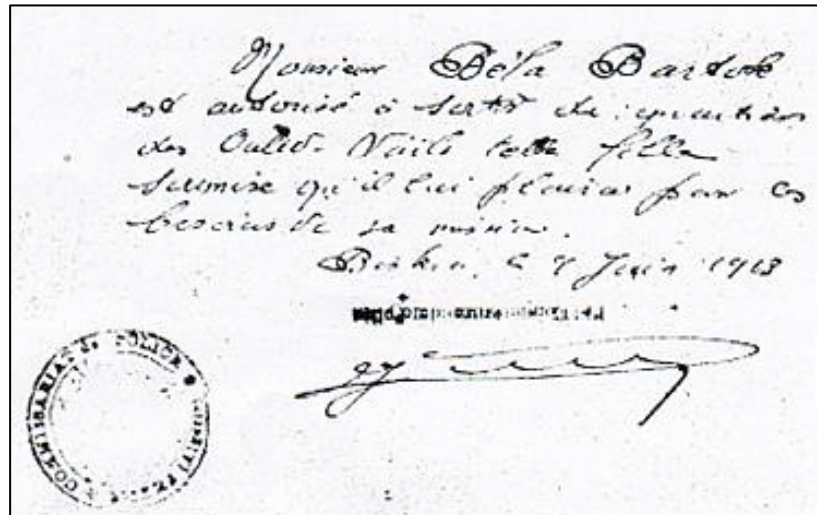 Monsieur Béla Bartok
est autorisé à sortir du quartier
des Ouled-Naïls toute fille
soumise qu'il lui plaira pour les
besoins de sa mission.
Biskra, le 7 Juin 1913
COMMISSARIAT DE POLICE